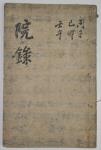 院錄
己卯
壬午